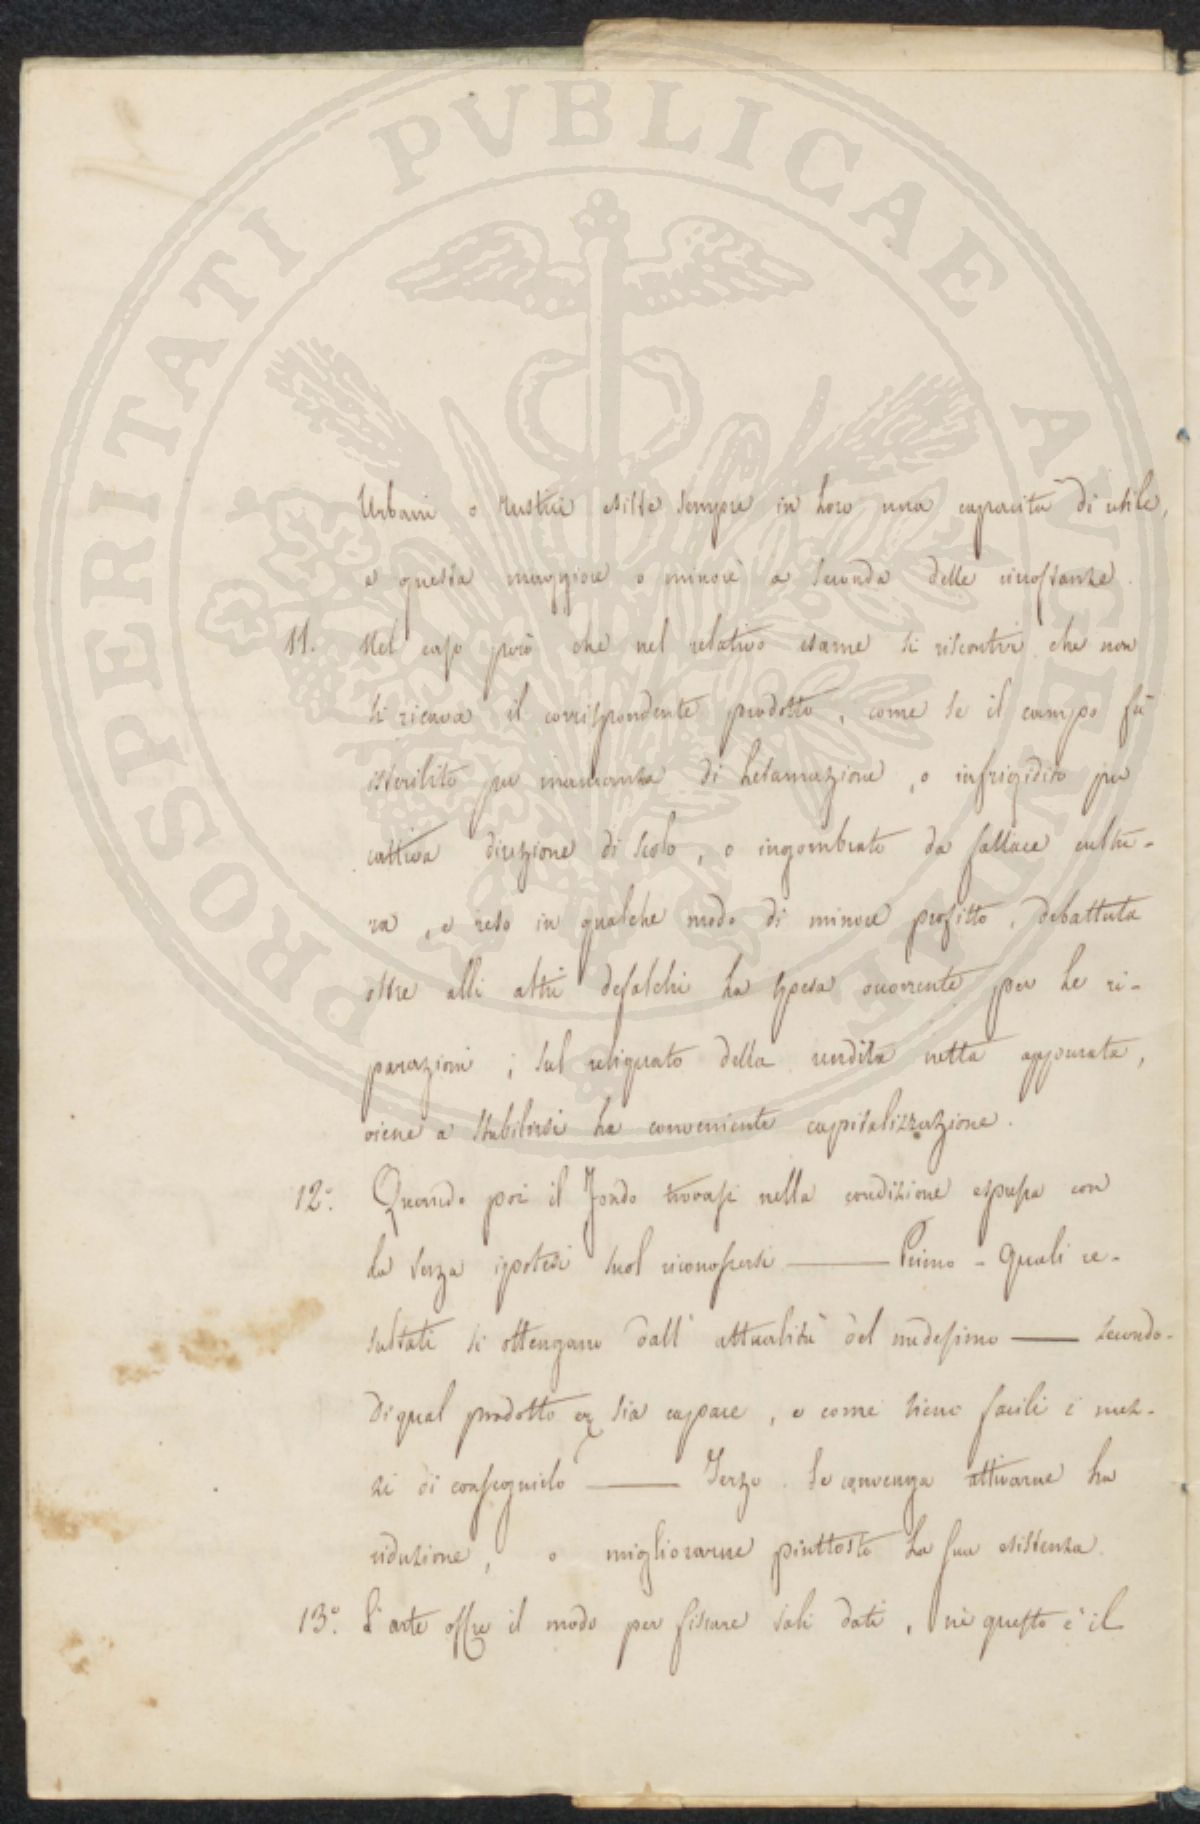 PROSPERITATI PVBLICAE AVGENDAE
Urbani o rustici esiste sempre in loro una capacità di utile,
e questa maggiore o minore a seconda delle circostanze.
11. Nel caso però che nel relativo esame si riscontri che non
si ricava il corrispondente prodotto, come se il campo fù
isterilito per mancanza di letamazione, o infrigidito per
cattiva direzione di scolo, o ingombrato da fallace cultu-
ra, e reso in qualche modo di minore profitto, debattuta
oltre alli altri defalchi la spesa occorrente per le ri-
parazioni; sul reliquato della rendita netta appurata,
viene a stabilirsi la conveniente capitalizzazione.
12.° Quando poi il Fondo trovasi nella condizione espressa con
la terza ipotesi suol riconoscersi — Primo - Quali re-
sultati si ottengano dall'attualità del medesimo — secondo-
di qual prodotto sia capace, e come siene facili i mez-
zi di conseguirlo — Terzo. Se convenga attivarne la
riduzione, o migliorarne piuttosto la sua esistenza.
13.° L'arte offre il modo per fissare tali dati, nè questo è il